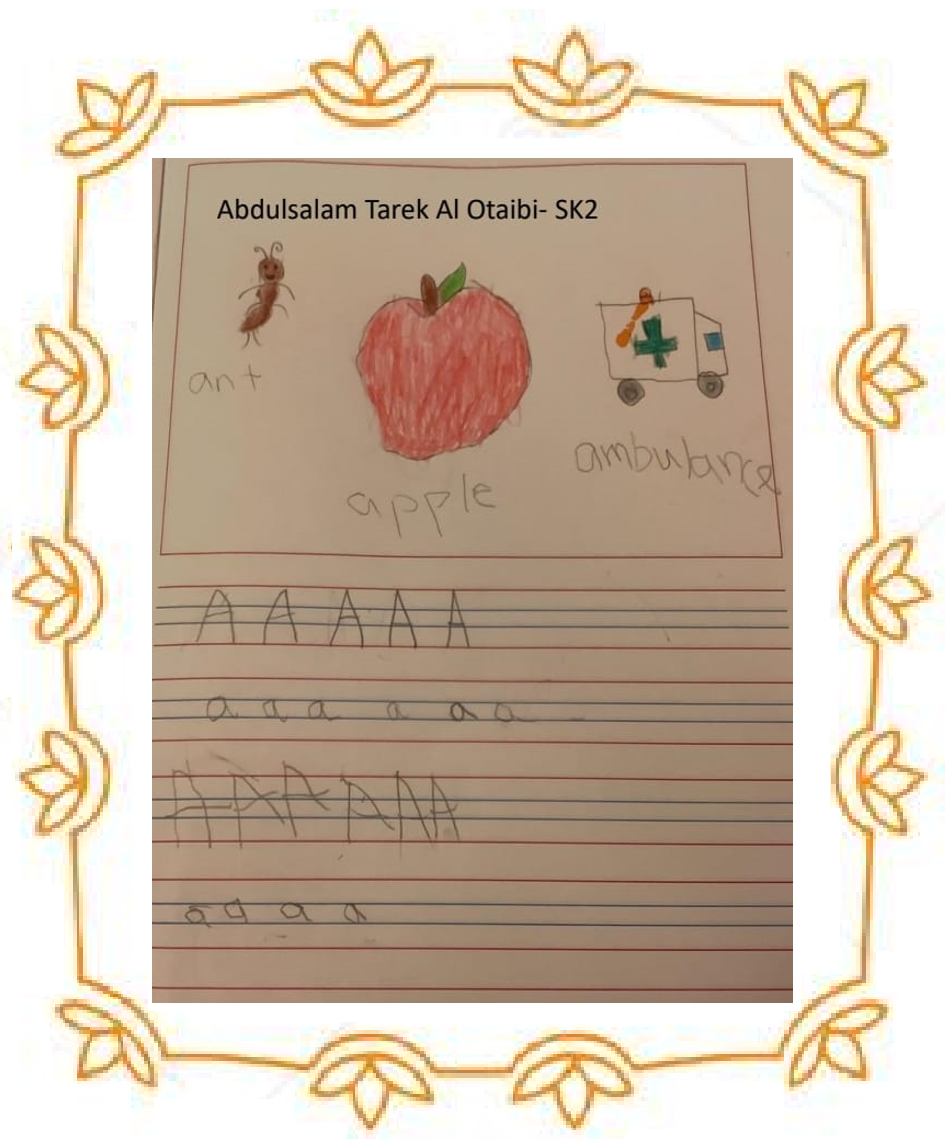 Abdulsalam Tarek Al Otaibi- SK2
ant
apple
ambulance
A A A A A
a a a a a a
A A A A A A
a a a a